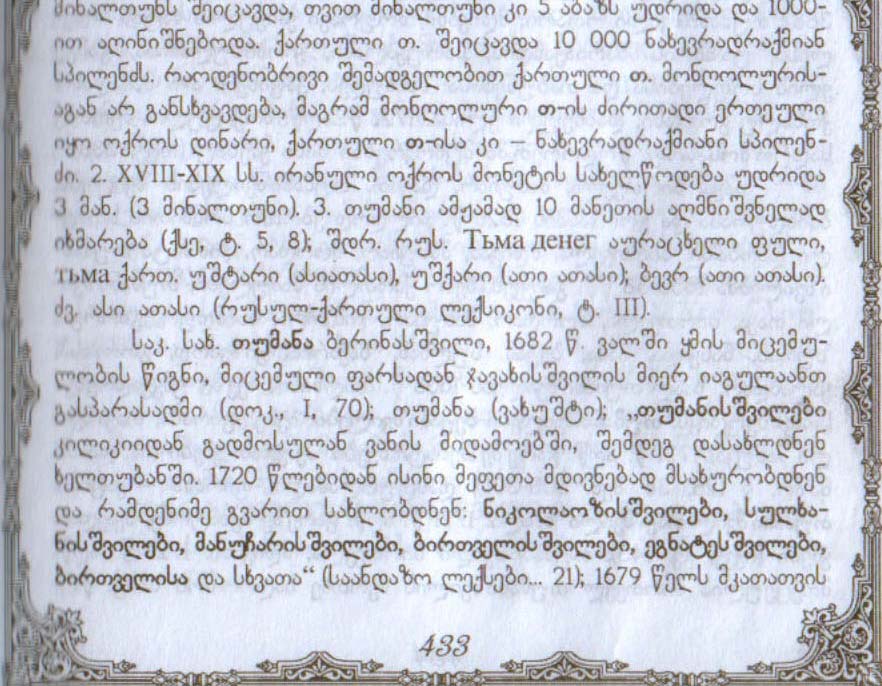 მინალთუნს შეიცავდა, თვით მინალთუნი კი 5 აბაზს უდრიდა და 1000-
ით აღინიშნებოდა. ქართული თ. შეიცავდა 10 000 ნახევრადრაქმიან
სპილენძს. რაოდენობრივი შემადგელობით ქართული თ. მონღოლურის-
აგან არ განსხვავდება, მაგრამ მონღოლური თ-ის ძირითადი ერთეული
იყო ოქროს დინარი, ქართული თ-ისა კი – ნახევრადრაქმიანი სპილენ-
ძი. 2. XVIII-XIX სს. ირანული ოქროს მონეტის სახელწოდება უდრიდა
3 მან. (3 მინალთუნი). 3. თუმანი ამჟამად 10 მანეთის აღმნიშვნელად
იხმარება (ქსე, ტ. 5, 8); შდრ. რუს. Тьма денег აურაცხელი ფული,
тьма ქართ. უშტარი (ასიათასი), უშქარი (ათი ათასი); ბევრ (ათი ათასი).
ძვ. ასი ათასი (რუსულ-ქართული ლექსიკონი, ტ. III).
საკ. სახ. თუმანა ბერინასშვილი, 1682 წ. ვალში ყმის მიცემუ-
ლობის წიგნი, მიცემული ფარსადან ჯავახისშვილის მიერ იაგულაანთ
გასპარასადმი (დოკ., I, 70); თუმანა (ვახუშტი); „თუმანისშვილები
კილიკიიდან გადმოსულან ვანის მიდამოებში, შემდეგ დასახლდნენ
ხელთუბანში. 1720 წლებიდან ისინი მეფეთა მდივნებად მსახურობდნენ
და რამდენიმე გვარით სახლობდნენ: ნიკოლაოზისშვილები, სულხა-
ნისშვილები, მანუჩარისშვილები, ბირთველისშვილები, ეგნატესშვილები,
ბირთველისა და სხვათა“ (საანდაზო ლექსები... 21); 1679 წელს მკათათვის
433